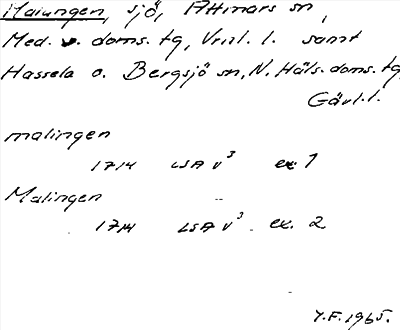 Malungen, sjö, Attmars sn,
Med. v. doms. tg, Vrnl. l. samt
Hassela o. Bergsjö sn, N. Häls. doms. tg,
Gävl. l.
malingen
1714 LSA v³ ex. 1
Malingen
1714 LSA v³. ex. 2
Y.F. 1965.